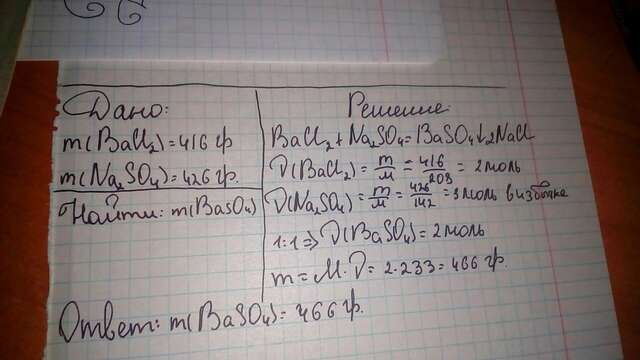 Дано:
m(BaCl₂)=416 гр
m(Na₂SO₄)=426 гр.
Найти: m(BaSO₄)
Решение:
BaCl₂+Na₂SO₄=BaSO₄↓2NaCl
ν(BaCl₂)=m/M=416/208=2моль
ν(Na₂SO₄)=m/M=426/142=3моль в избытке
1:1⇒ν(BaSO₄)=2моль
m=M·ν=2·233=466 гр.
Ответ: m(BaSO₄)=466 гр.